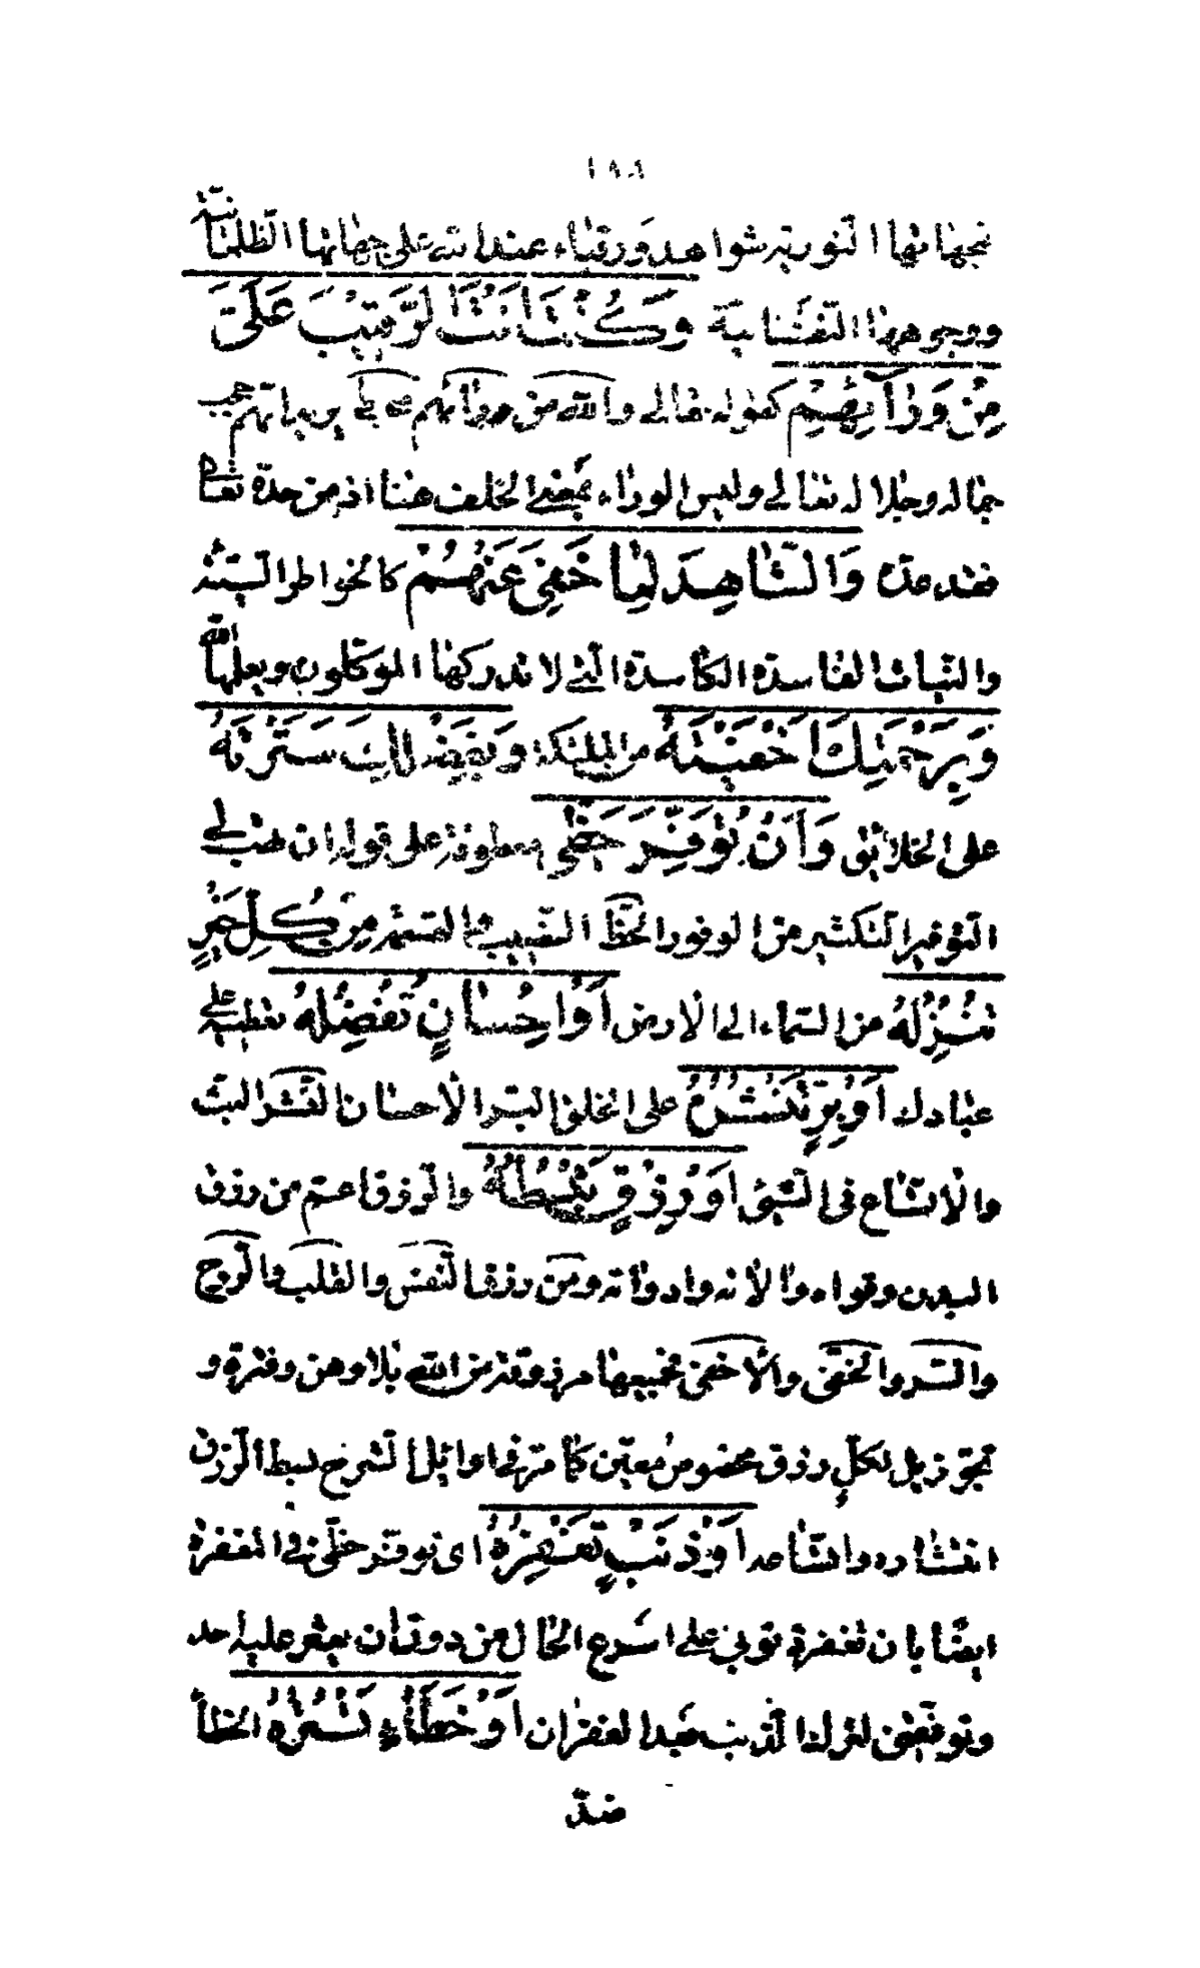 ١٨٦
بجهاتها النورية شواهد ورقباء عند الله على جهاتها الظلمانية
ووجوهها النفسانية وَكُنْتَ اَنْتَ الرَّقيبَ عَلَيَّ
مِنْ وَرٰآئِهِمْ كقوله تعالى والله من ورائهم محيط بربهم
جماله وجلاله تعالى وليس الوراء بمعنى الخلف هنا اذ من حدّه تعالى
فقد عدّه وَالشّٰاهِدَ لِمٰا خَفِيَ عَنْهُمْ كالخواطر السيئة
والنيات الفاسدة الكاسدة التي لا تدركها الموكلون ويعلمها الله
وَبِرَحْمَتِكَ اَخْفَيْتَهُ من الملائكة وَبِفَضْلِكَ سَتَرْتَهُ
على الخلائق وَاَنْ تُوَفِّرَ حَظّي معطوفة على قوله ان تهب لي
التوفير التكثير من الوفور الحظّ النصيب والقسم مِنْ كُلِّ خَيْرٍ
تُنْزِلُهُ من السماء الى الارض اَوْ اِحْسٰانٍ تُفْضِلُهُ على
عبادك اَوْ بِرٍّ تَنْشُرُهُ على الخلق البر الاحسان النشر البث
والاتساع في الشيء اَوْ رِزْقٍ تَبْسُطُهُ والرزق اعم من رزق
البدن وقواه والاته وادواته ومن رزق النفس والقلب والروح
والسر والخفي والاخفى فجميعها مرزوقة من الله بلا وهن وفترة و
تجويز بل لكل رزق مخصوص معين كما مر في اوائل الشرح بسط الرزق
انتشاره واتساعه اَوْ ذَنْبٍ تَغْفِرُهُ اى توفر حظي في المغفرة
ايضا بان تغفر ذنوبي على اسرع الحال من دون ان يعثر عليه احد
وتوفيقي لترك الذنب بعد الغفران اَوْ خَطَأٍ تَسْتُرُهُ الخطأ
ضدّ